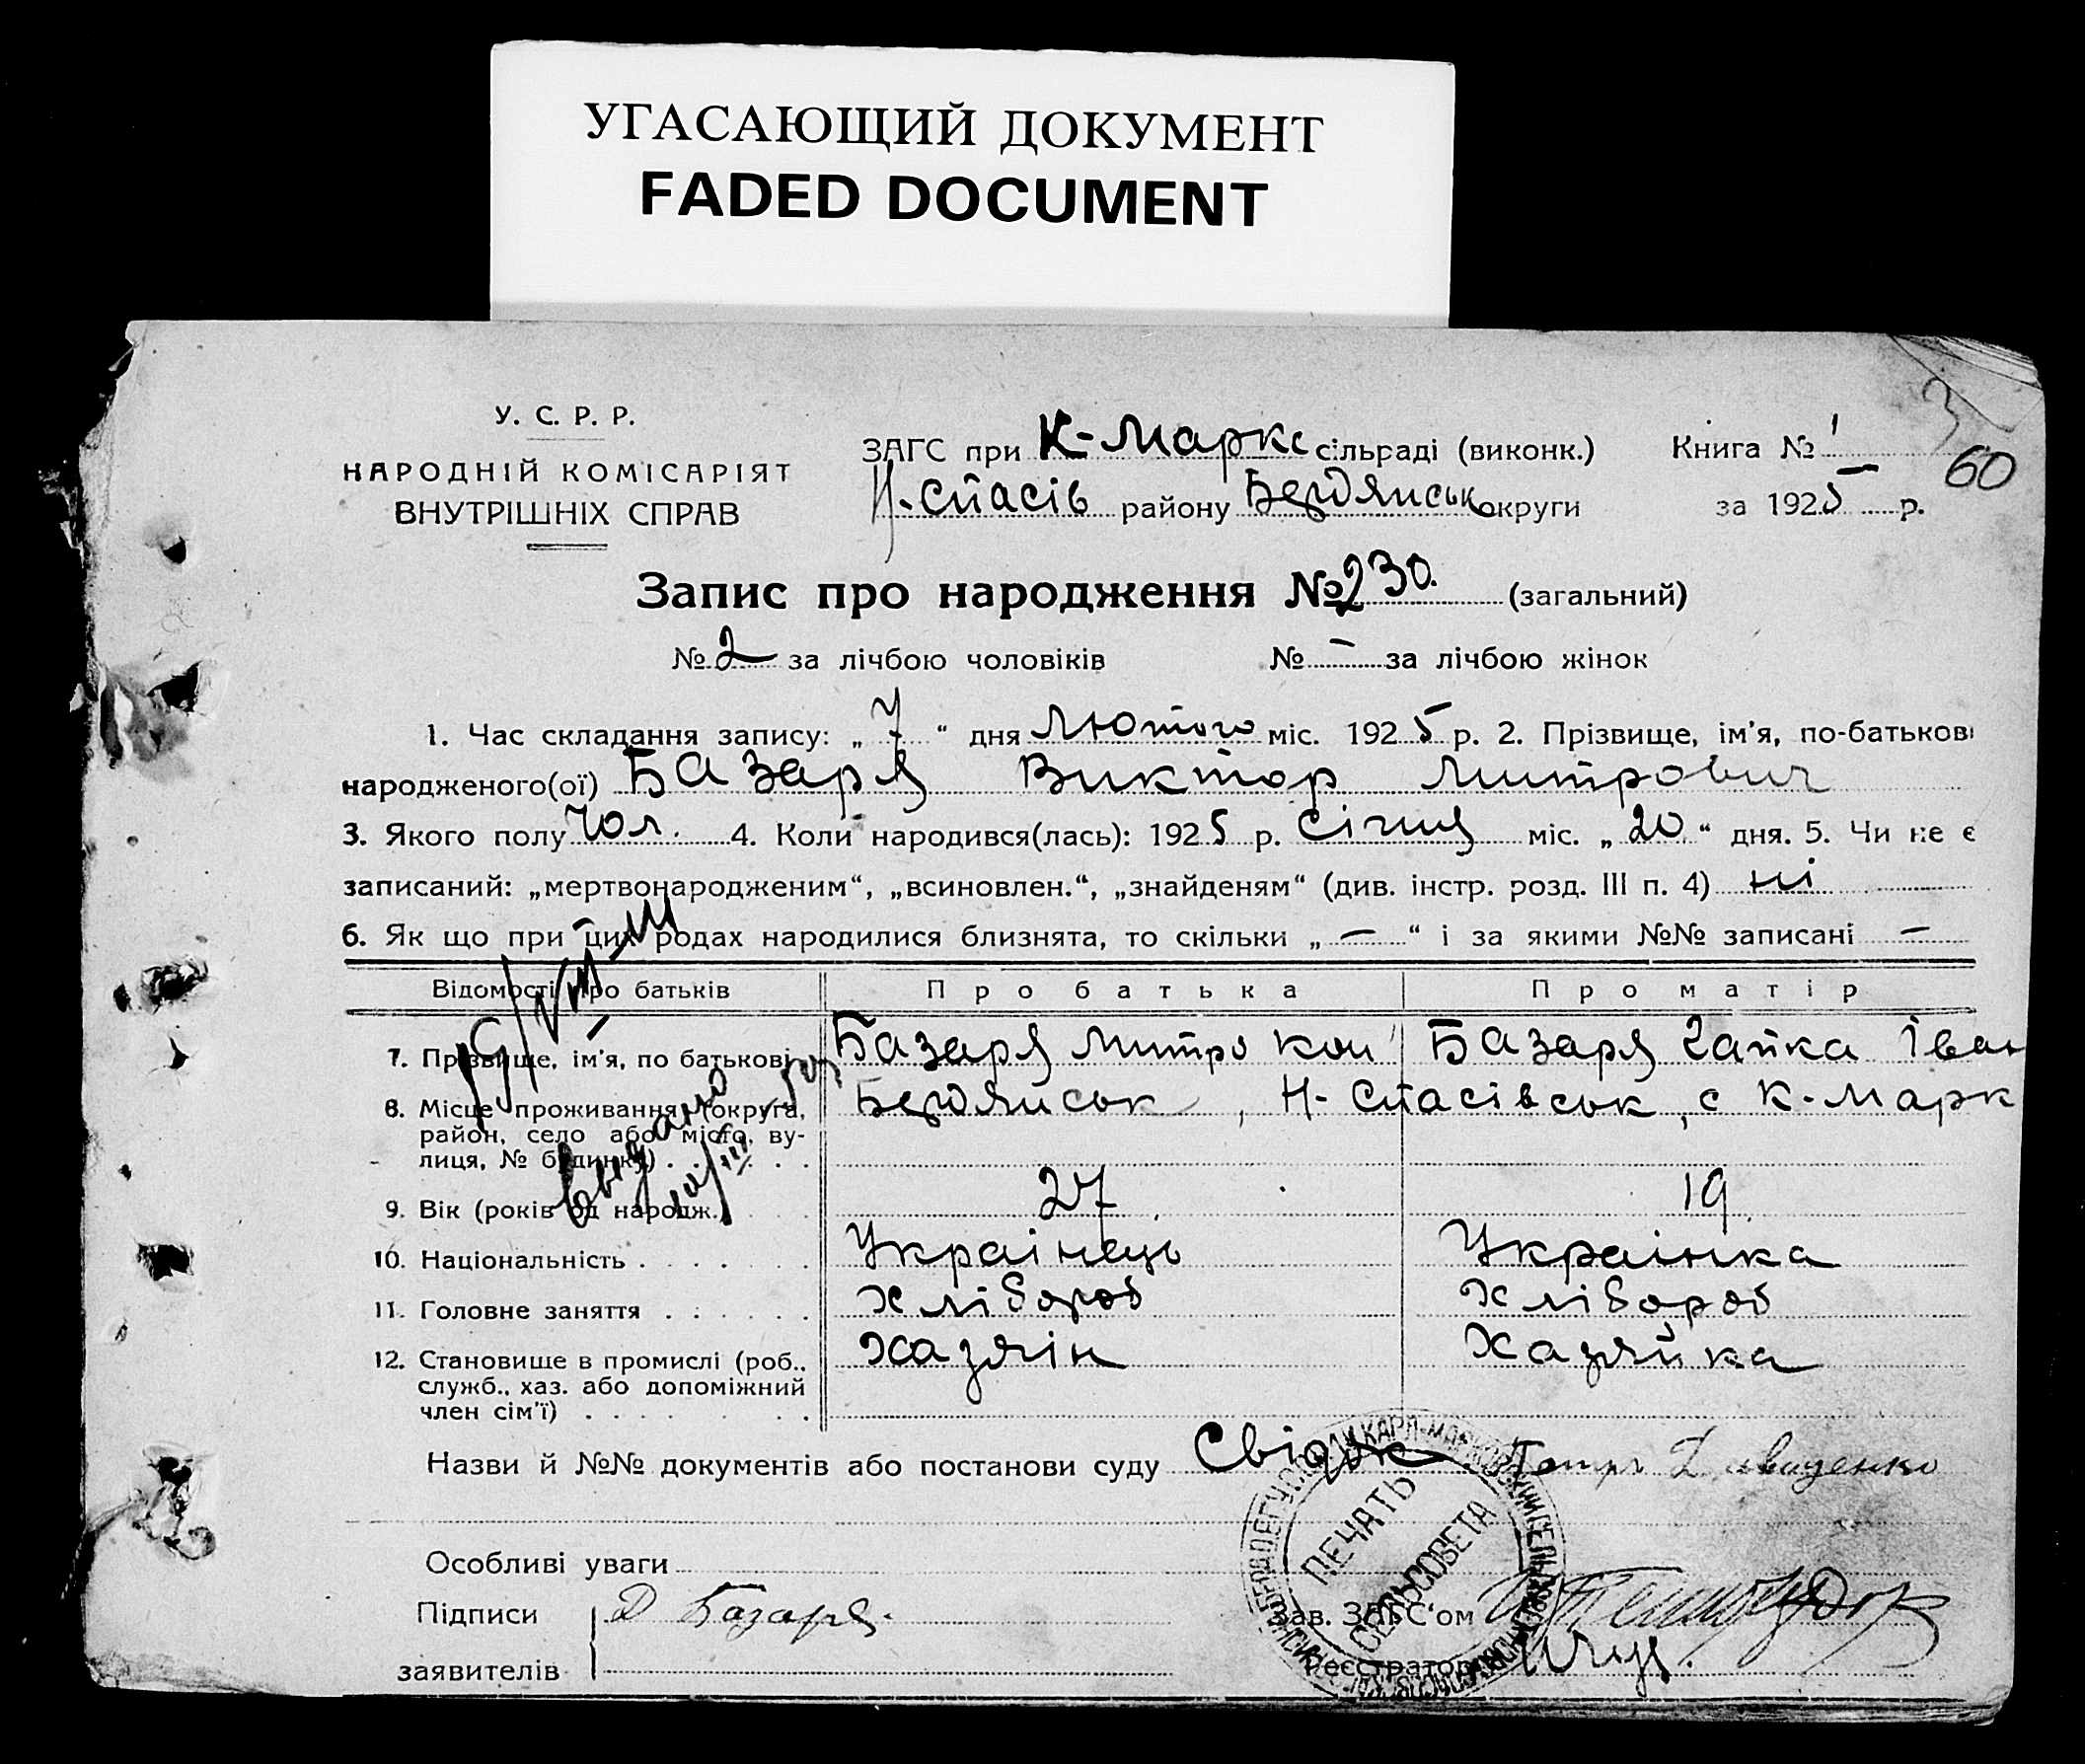 УГАСАЮЩИЙ ДОКУМЕНТ
FADED DOCUMENT
У. С. Р. Р.
НАРОДНІЙ КОМІСАРІЯТ
ВНУТРІШНІХ СПРАВ
ЗАГС при К-Маркс сільраді (виконк.) Книга № 1
60
Н-Спасів району Бердянськ округи за 1925 р.
Запис про народження № 230. (загальний)
№ 2 за лічбою чоловіків № — за лічбою жінок
1. Час складання запису: „7“ дня Лютого міс. 1925 р. 2. Прізвище, ім'я, по-батькові
народженого(ої) Базаря Виктор Митрович
3. Якого полу Чол. 4. Коли народився(лась): 1925 р. Січня міс. „20“ дня. 5. Чи не є
записаний: „мертвонародженим“, „всиновлен.“, „знайденям“ (див. інстр. розд. III п. 4) ні
6. Як що при цих родах народилися близнята, то скільки „—“ і за якими №№ записані —
Відомості про батьків Про батька Про матір
7. Прізвище, ім'я, по батькові Базаря Митро Кон Базаря Гапка Іван
8. Місце проживання (округа, Бердянськ, Н-Спасівськ, с К-Марк
район, село або місто, ву-
лиця, № будинку)
видано
9. Вік (років од народж.) 27 19
10. Національність Украінець Украінка
11. Головне заняття Хлібороб Хлібороб
12. Становище в промислі (роб., Хазяін Хазяйка
служб., хаз. або допоміжний
член сім'ї)
Назви й №№ документів або постанови суду Свідок Петро
Особливі уваги
ПЕЧАТЬ
СЕЛЬСОВЕТА
Підписи Д Базаря. Зав. ЗАГС'ом
заявителів Реєстратор